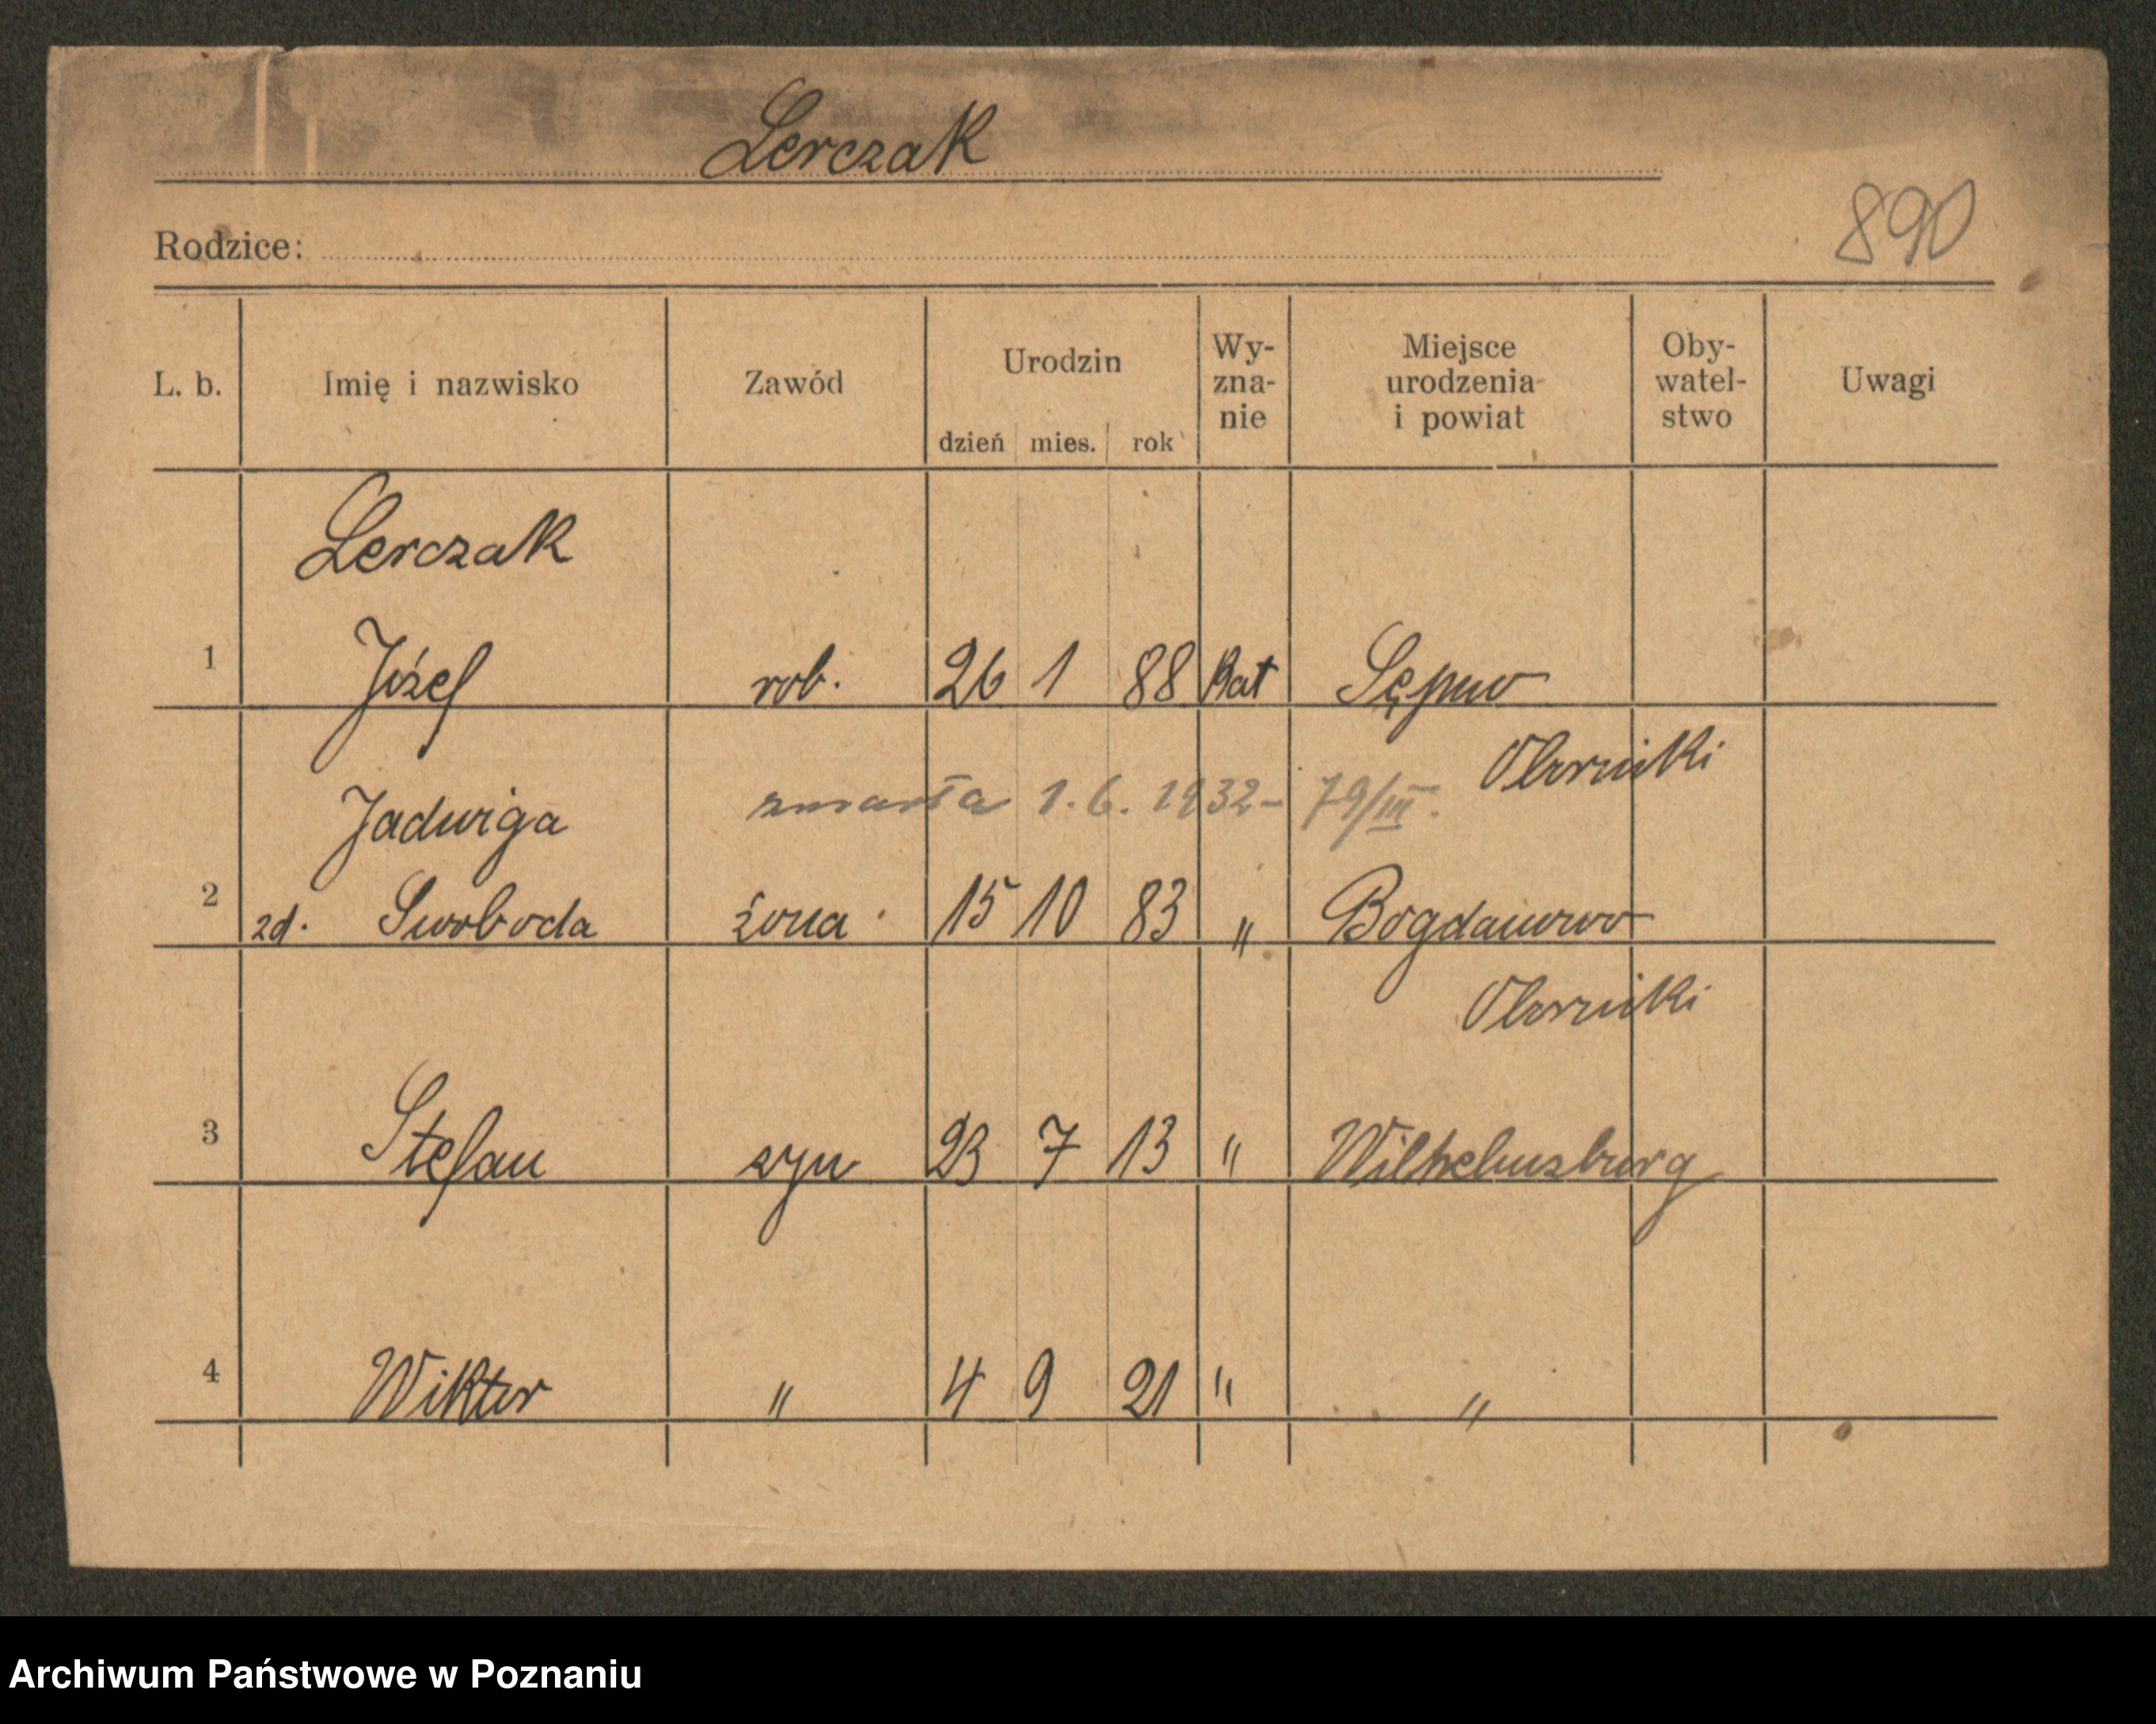 Lerczak
890
Rodzice:
L. b. Imię i nazwisko Zawód Urodzin dzień mies. rok Wy-zna-nie Miejsce urodzenia i powiat Oby-watel-stwo Uwagi
Lerczak
1 Józef rob. 26 1 88 Kat Sępno
Oborniki
Jadwiga zmarła 1.6.1932 - 79/III.
2 zd. Swoboda żona 15 10 83 " Bogdanowo
Oborniki
3 Stefan syn 23 7 13 " Wilhelmsburg
4 Wiktor " 4 9 21 " "
Archiwum Państwowe w Poznaniu